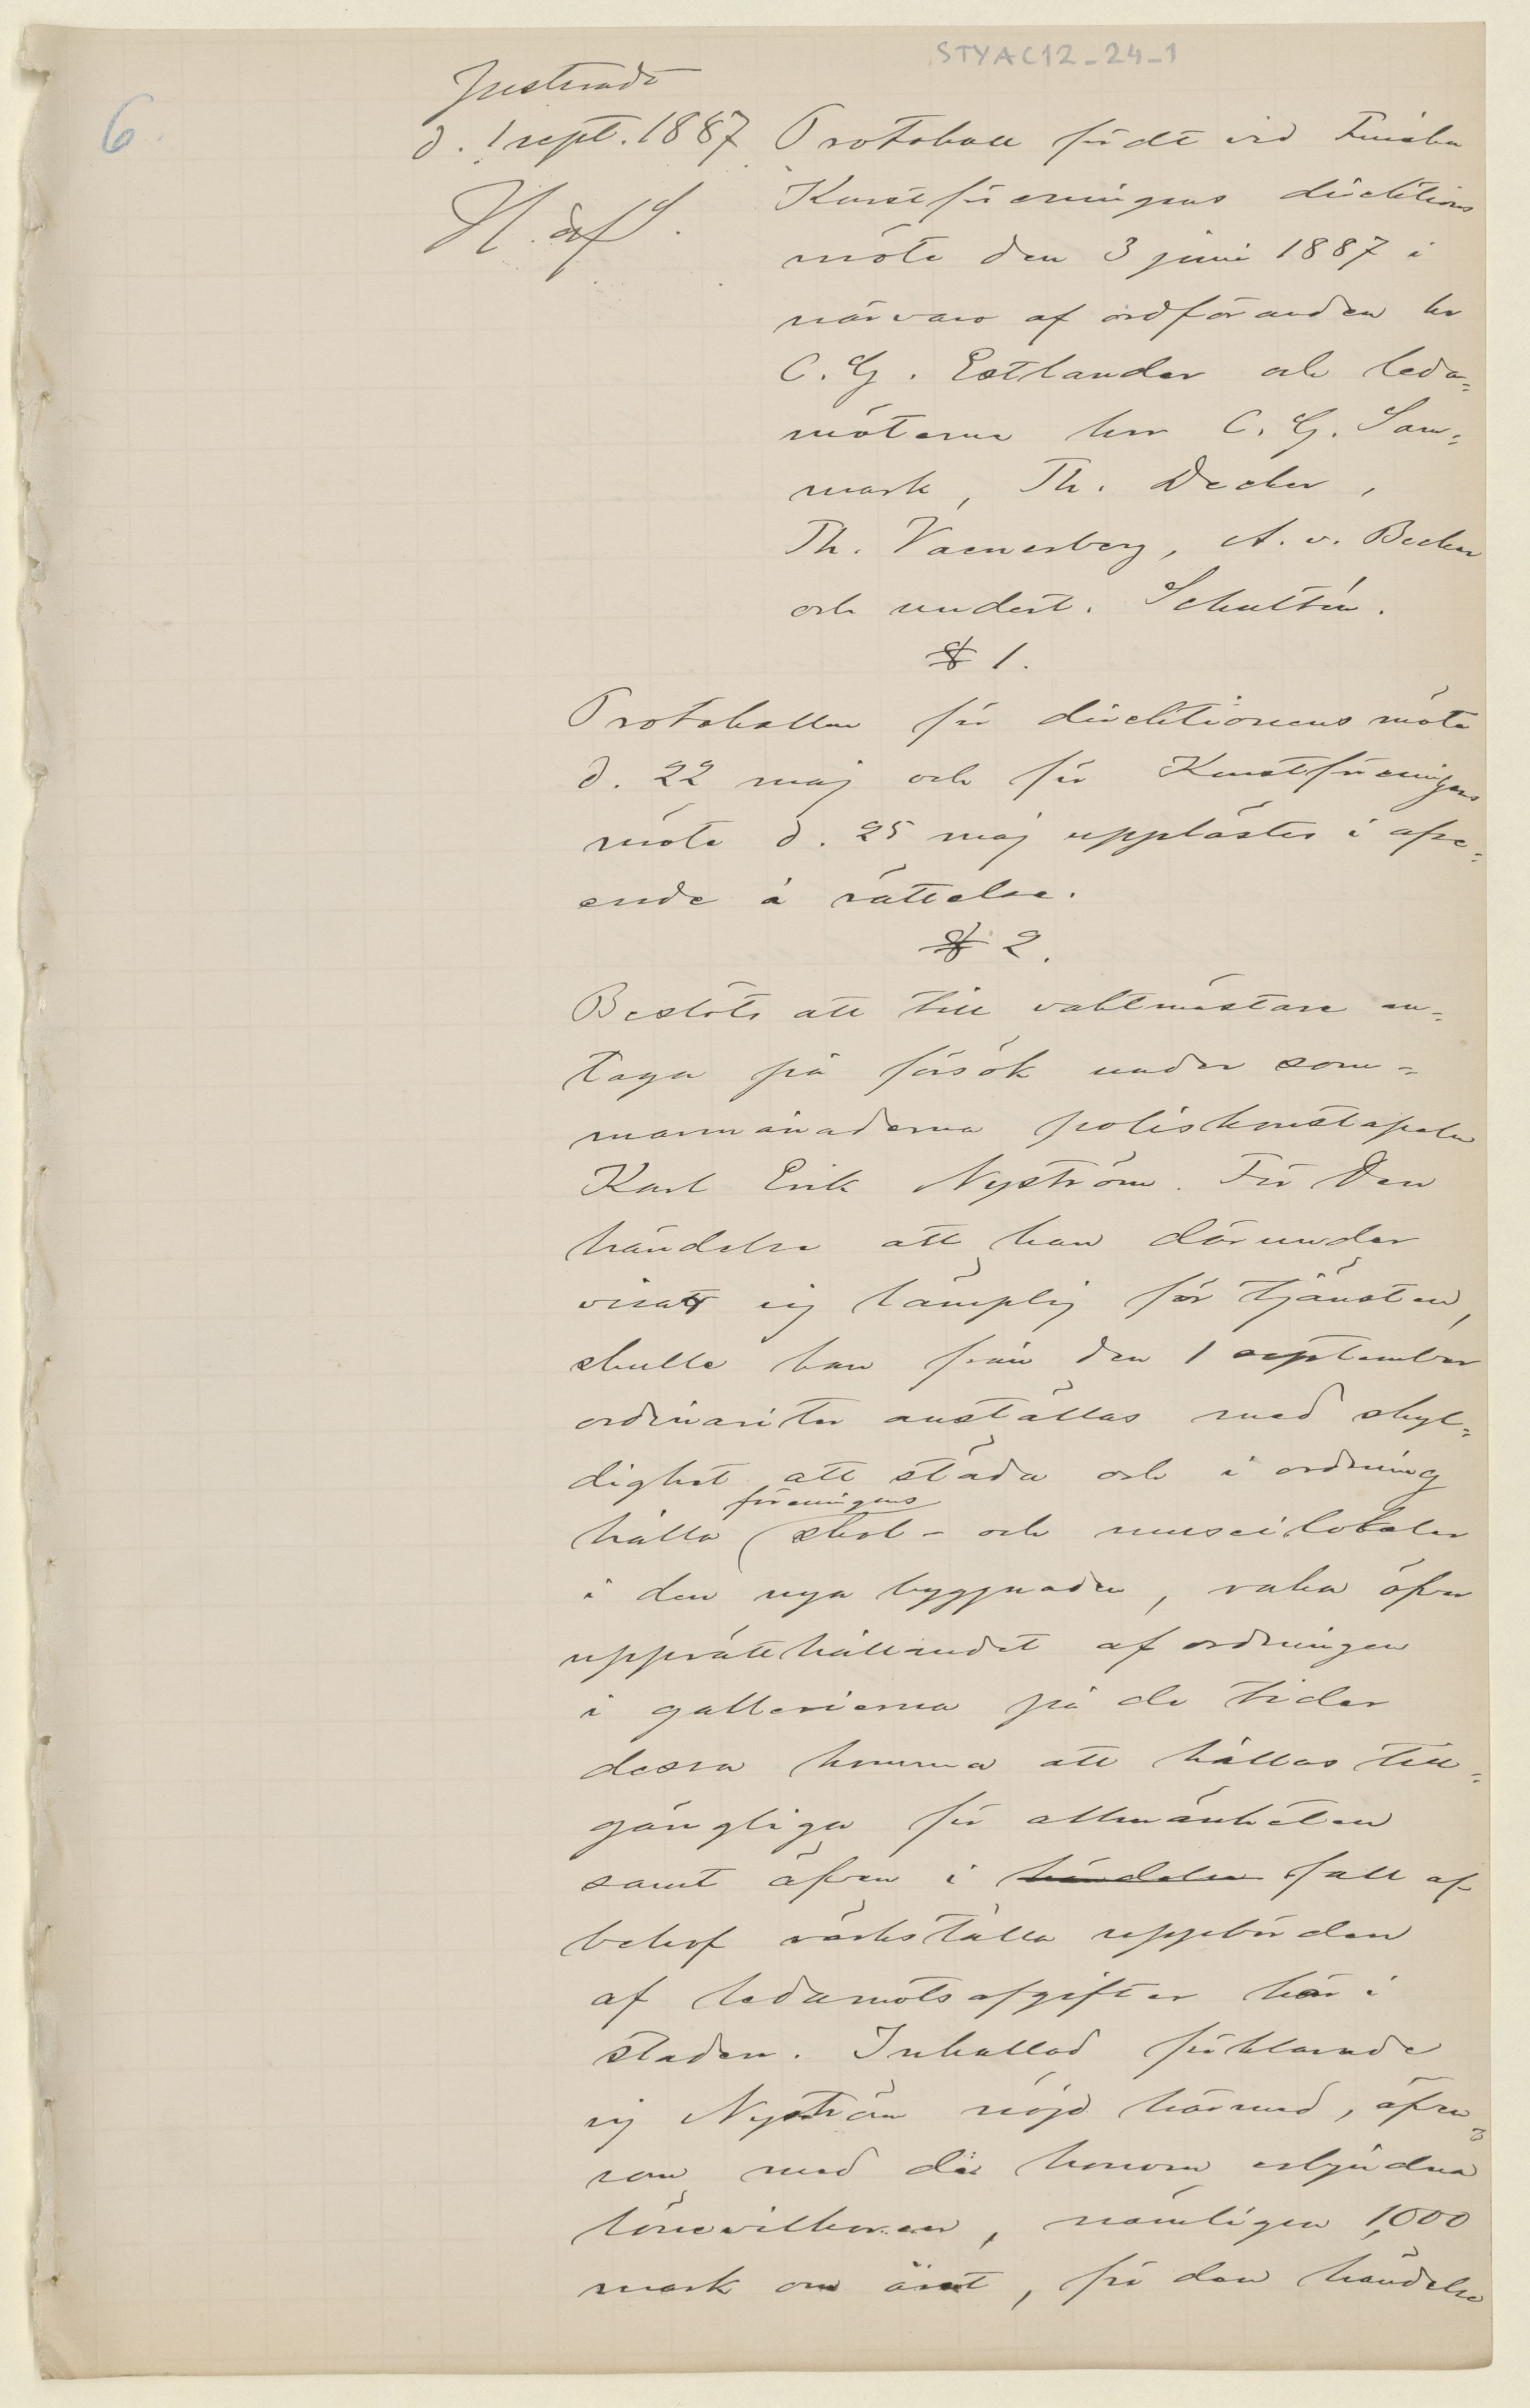 STYAC12-24-1
6.
Justeradt
d. 1 sept. 1887
Protokoll fördt vid Finska
Konstföreningens direktions
möte den 3 juni 1887 i
närvaro af ordföranden hr
C. G. Estlander och leda=
möterne hrr C. G. San=
mark, Th. Decker,
Th. Waenerberg, A. v. Becker
och undert. Schultén.
§ 1.
Protokollen för direktionens möte
d. 22 maj och för Konstföreningens
möte d. 25 maj upplästes i afse=
ende å rättelse.
§ 2.
Beslöts att till vaktmästare an=
taga på försök under som=
marmånaderna poliskonstapeln
Karl Erik Nyström. För den
händelse att han därunder
visat sig lämplig för tjänsten,
skulle han från den 1 september
ordinariter anställas med skyl=
dighet att städa och i ordning
hålla föreningens skol- och museilokaler
i den nya byggnaden, vaka öfver
upprätthållandet af ordningen
i gallerierna på de tider
dessa komma att hållas till=
gängliga för allmänheten
samt äfven i händelse fall af
behof värkställa uppbörden
af ledamotsafgifter här i
staden. Inkallad förklarade
sig Nyström nöjd härmed, äfven=
som med de honom erbjudna
lönevilkoren, nämligen 1,000
mark om året, för den händelse